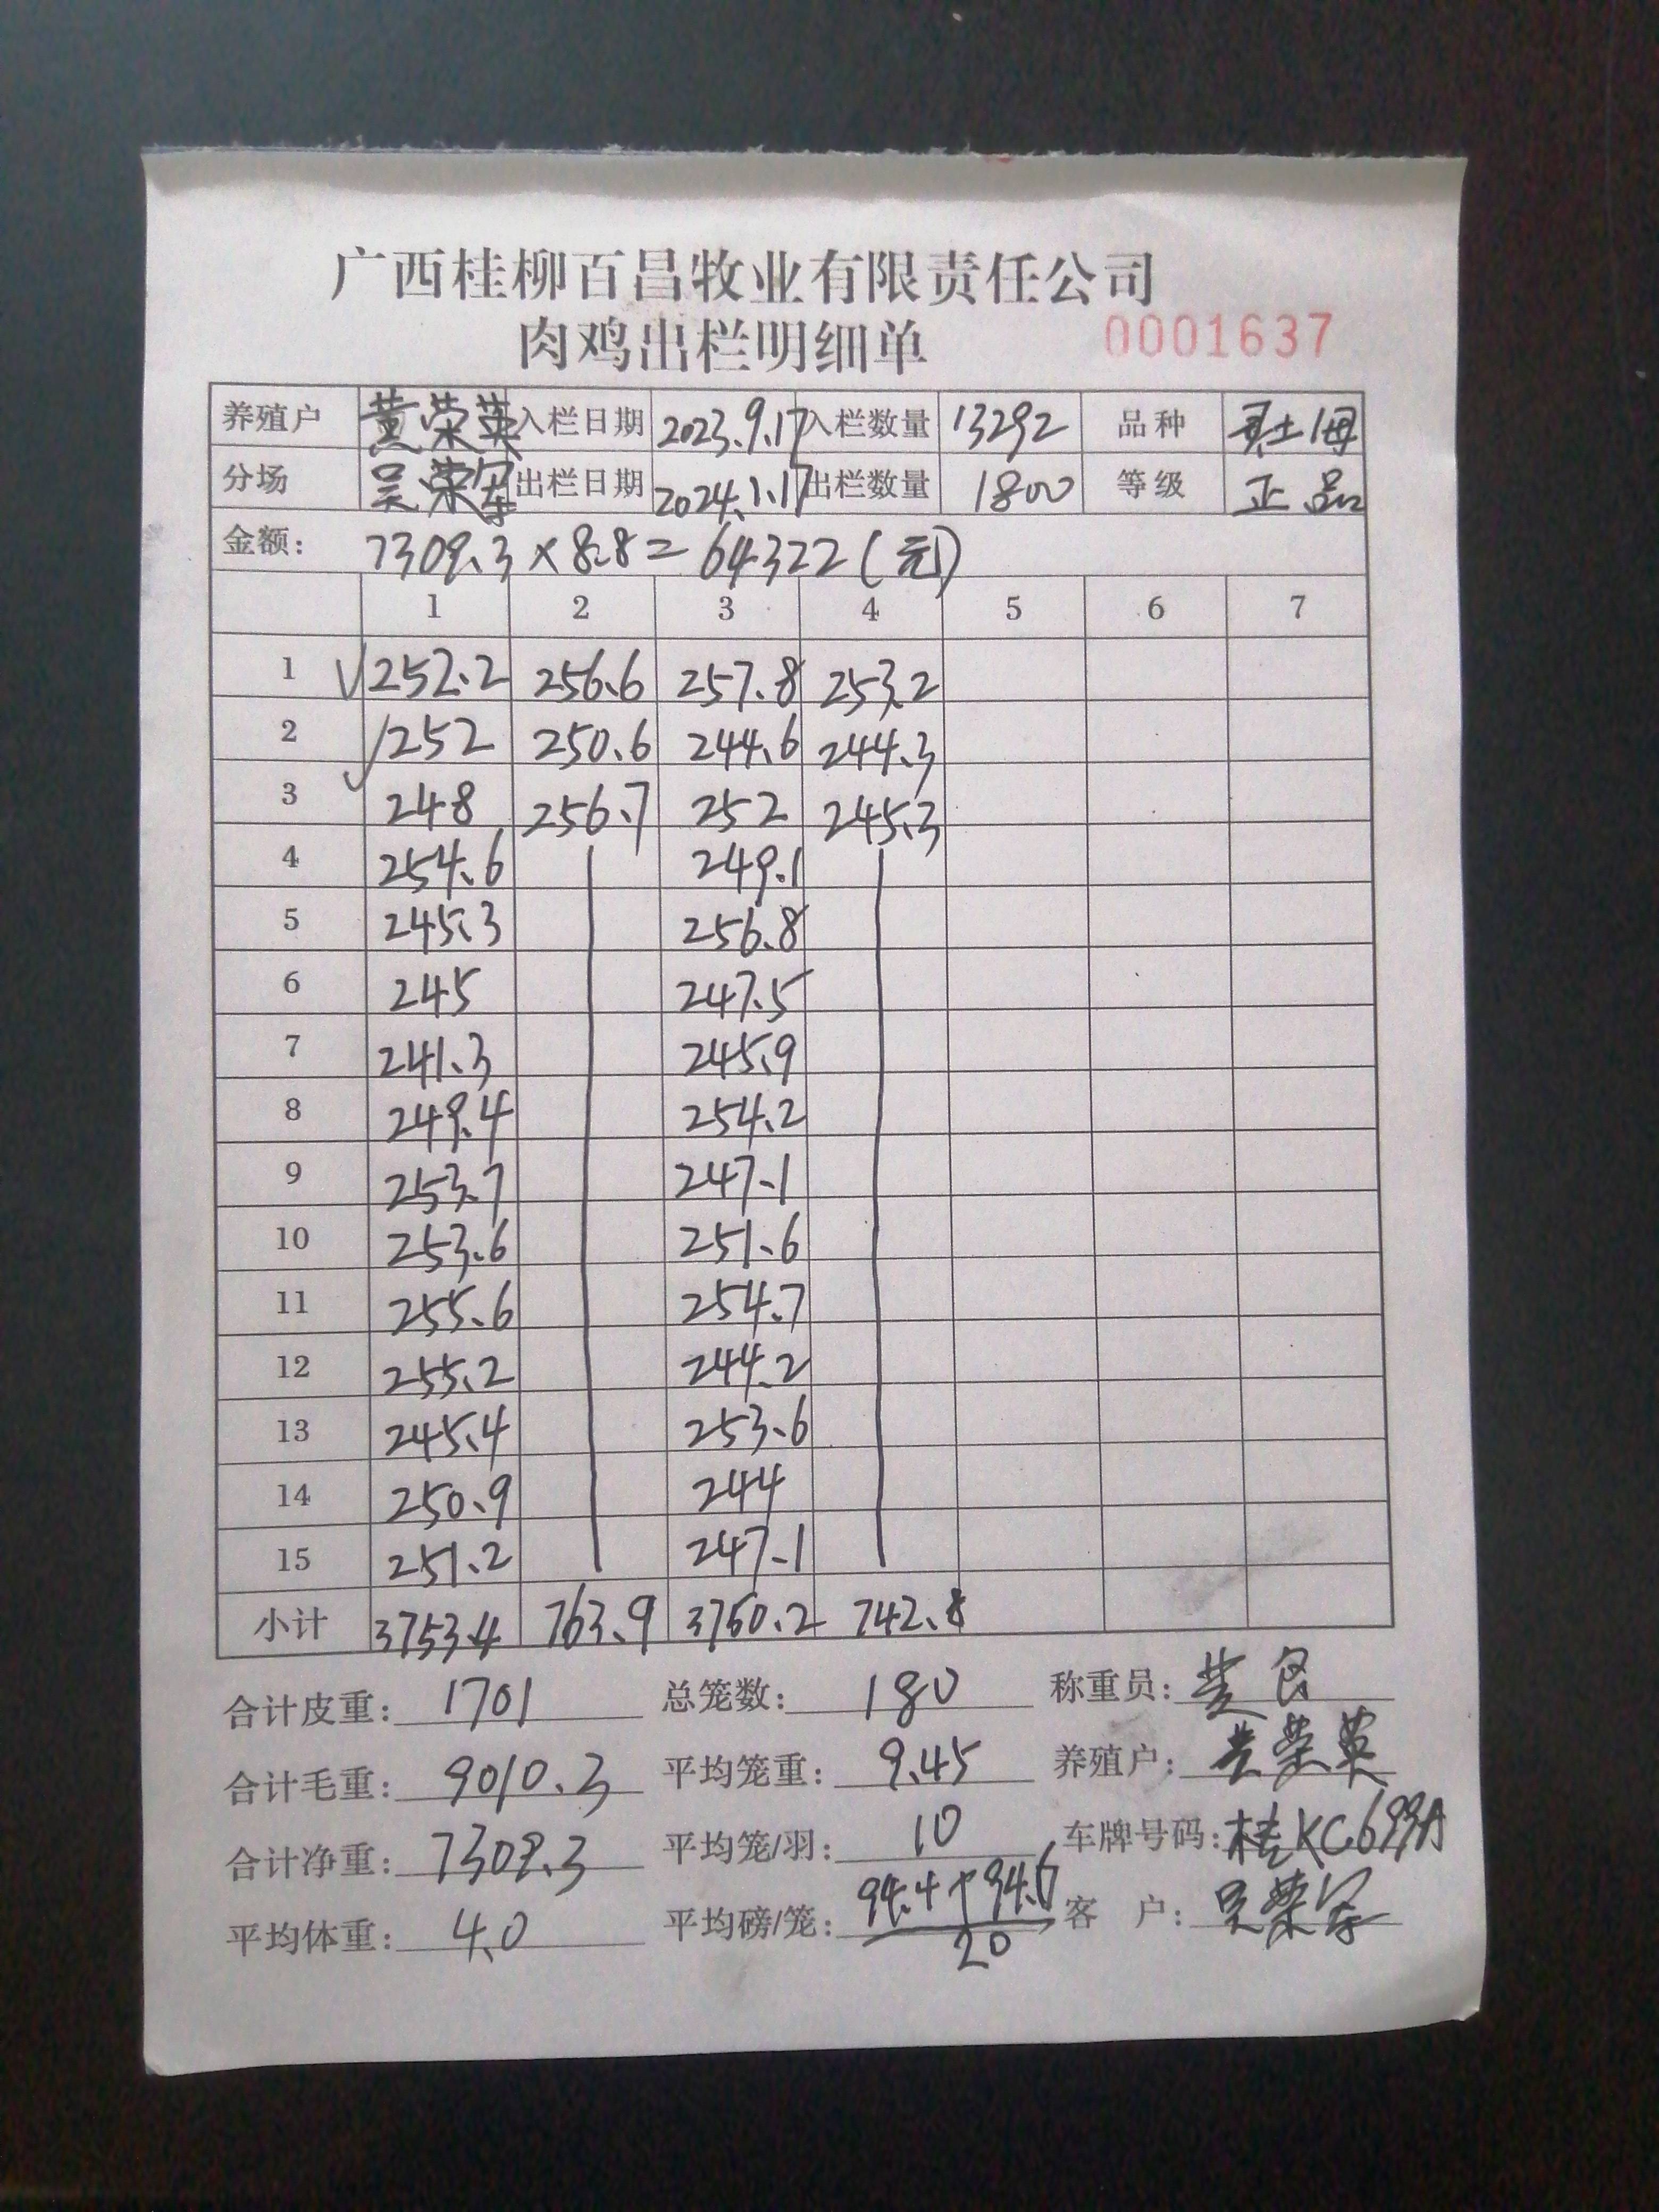 广西桂柳百昌牧业有限责任公司
肉鸡出栏明细单 0001637
养殖户 黄荣英 入栏日期 2023.9.17 入栏数量 13292 品种 土1母
分场 吴荣军 出栏日期 2024.1.17 出栏数量 1800 等级 正品
金额: 7309.3×8.8=64322(元)
1 2 3 4 5 6 7
1 252.2 256.6 257.8 253.2
2 252 250.6 244.6 244.3
3 248 256.7 252 245.3
4 254.6 249.1
5 245.3 256.8
6 245 247.5
7 241.3 245.9
8 249.4 254.2
9 253.7 247.1
10 253.6 251.6
11 255.6 254.7
12 255.2 244.2
13 245.4 253.6
14 250.9 244
15 251.2 247.1
小计 3753.4 763.9 3750.2 742.8
合计皮重: 1701 总笼数: 180 称重员:
合计毛重: 9010.3 平均笼重: 9.45 养殖户: 黄荣英
合计净重: 7309.3 平均笼/羽: 10 车牌号码: 桂KC699A
平均体重: 4.0 平均磅/笼: 94.4+94.6 客 户: 吴荣军
20